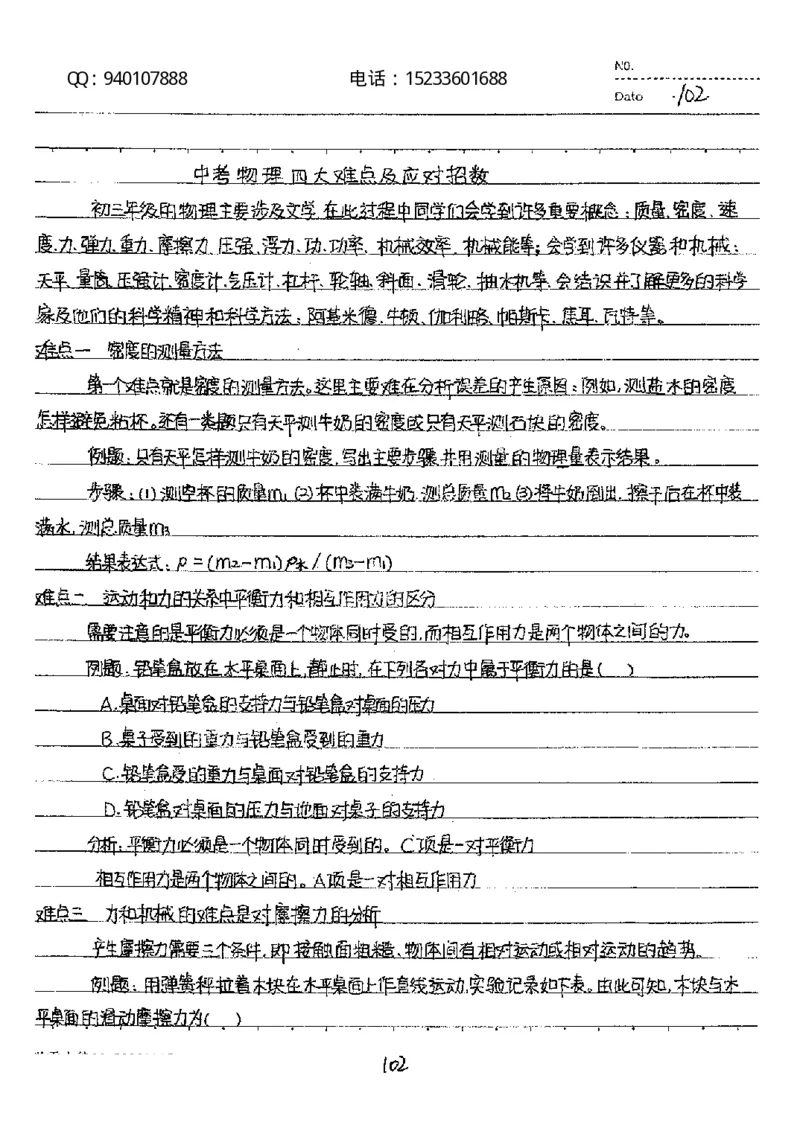 No.
QQ：940107888
电话：15233601688
Date
102
中考物理四大难点及应对招数
初三年级的物理主要涉及文学，在此过程中同学们会学到许多重要概念：质量、密度、速
度、力、弹力、重力、摩擦力、压强、浮力、功、功率、机械效率、机械能等；会学到许多仪器和机械：
天平、量筒、压强计、密度计、气压计、杠杆、轮轴、斜面、滑轮、抽水机等，会结识并了解更多的科学
家及他们的科学精神和科学方法：阿基米德、牛顿、伽利略、帕斯卡、焦耳、瓦特等。
难点一 密度的测量方法
第一个难点就是密度的测量方法。这里主要难在分析误差的产生原因：例如，测盐水的密度
怎样避免粘杯。还有一类题只有天平测牛奶的密度或只有天平测石块的密度。
例题：只有天平怎样测牛奶的密度，写出主要步骤并用测量的物理量表示结果。
步骤：(1)测空杯的质量m1 (2)杯中装满牛奶，测总质量m2 (3)将牛奶倒出，擦干后在杯中装
满水，测总质量m3
结果表达式：ρ=(m2-m1)ρ水/(m3-m1)
难点二 运动和力的关系中平衡力和相互作用力的区分
需要注意的是平衡力必须是一个物体同时受的，而相互作用力是两个物体之间的力。
例题：铅笔盒放在水平桌面上，静止时，在下列各对力中属于平衡力的是( )
A.桌面对铅笔盒的支持力与铅笔盒对桌面的压力
B.桌子受到的重力与铅笔盒受到的重力
C.铅笔盒受的重力与桌面对铅笔盒的支持力
D.铅笔盒对桌面的压力与地面对桌子的支持力
分析：平衡力必须是一个物体同时受到的。C项是一对平衡力
相互作用力是两个物体之间的。A项是一对相互作用力
难点三 力和机械的难点是对摩擦力的分析
产生摩擦力需要三个条件，即接触面粗糙、物体间有相对运动或相对运动的趋势。
例题：用弹簧秤拉着木块在水平桌面上作直线运动，实验记录如下表。由此可知，木块与水
平桌面的滑动摩擦力为( )
102